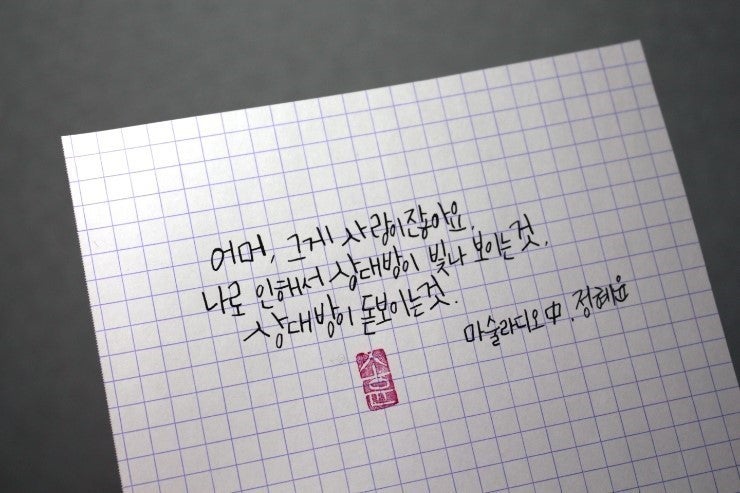 어머, 그게 사랑이잖아요.
나로 인해서 상대방이 빛나 보이는 것.
상대방이 돋보이는 것.
마술라디오 中. 정혜윤